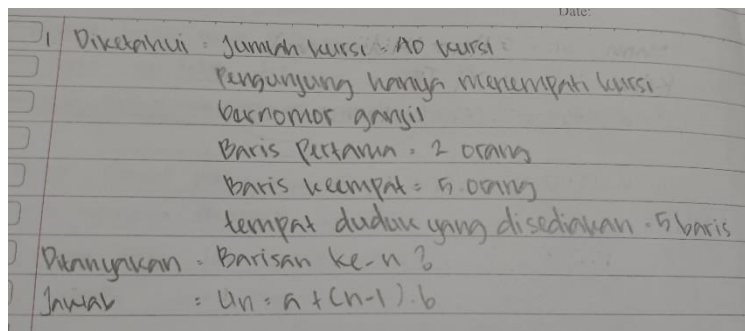 Date:
1 Diketahui = Jumlah kursi = 40 kursi.
Pengunjung hanya menempati kursi
bernomor ganjil
Baris Pertama = 2 orang
Baris keempat = 5 orang
tempat duduk yang disediakan = 5 baris
Ditanyakan = Barisan ke-n ?
Jawab = Un = a + (n-1).b